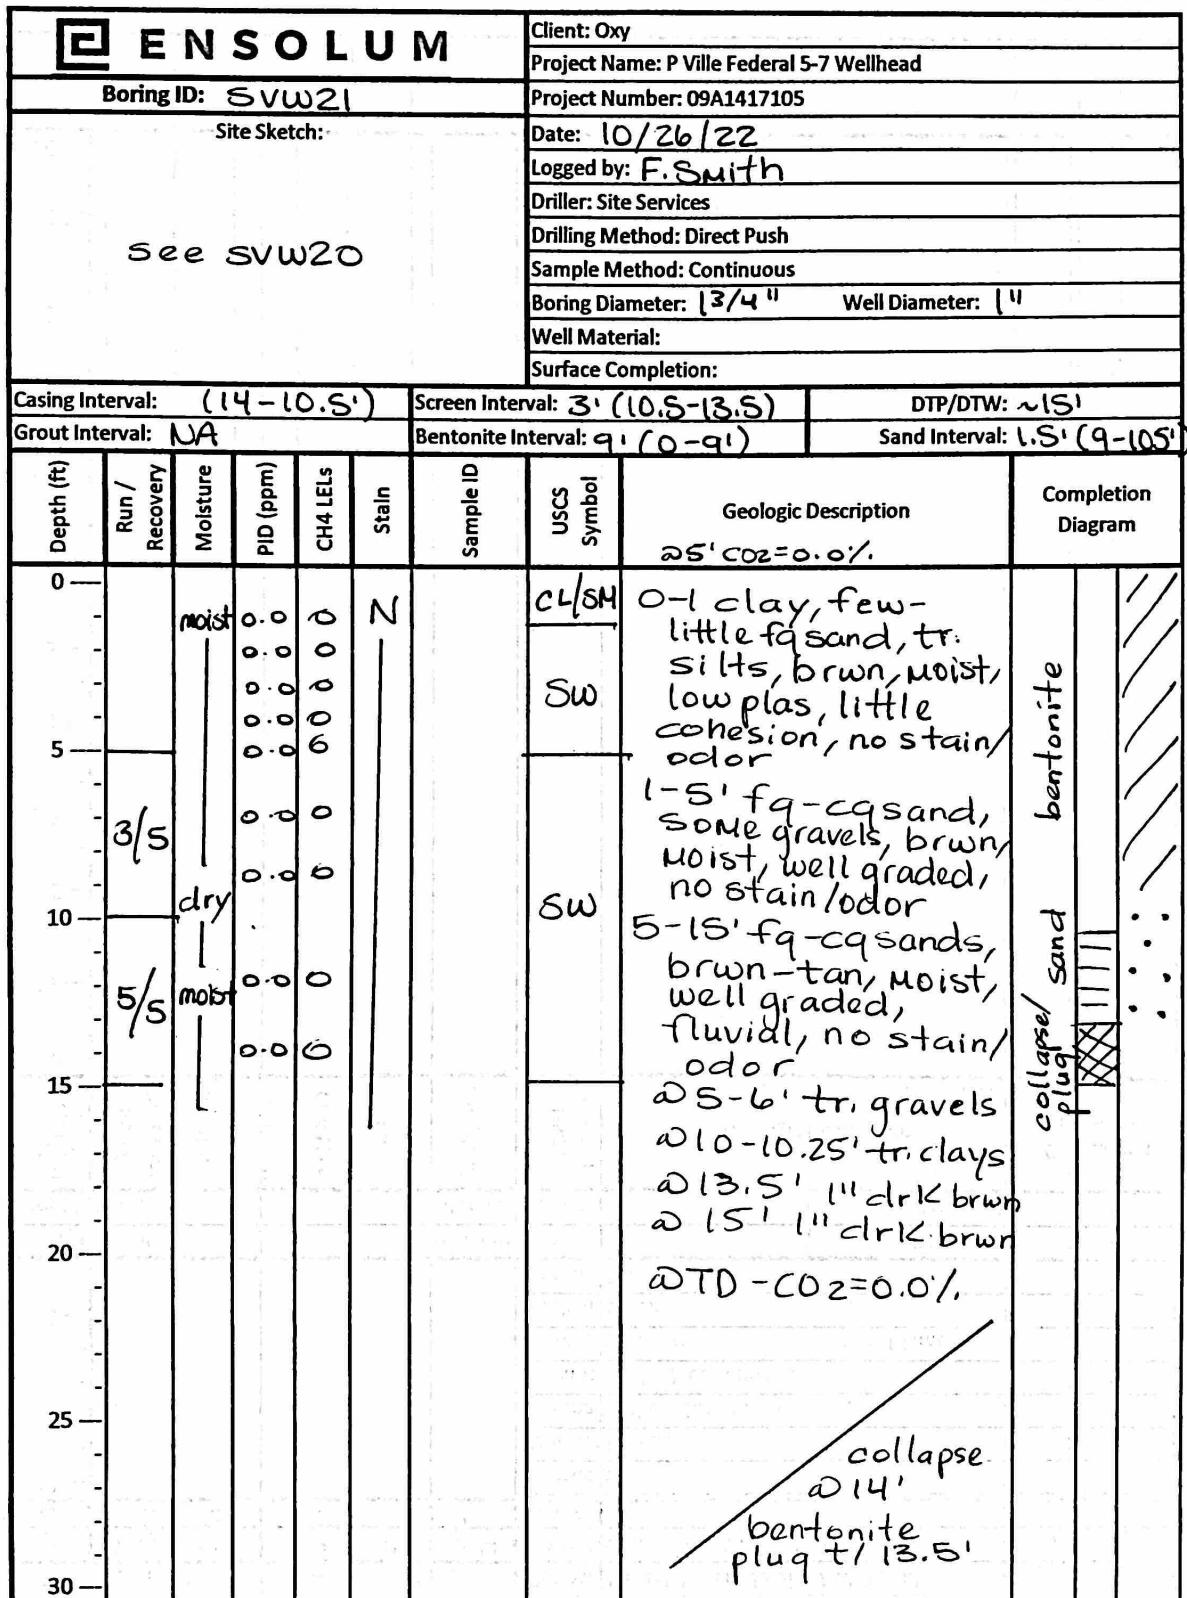 ENSOLUM
Boring ID: SVW21
Site Sketch:
see SVW20
Client: Oxy
Project Name: P Ville Federal 5-7 Wellhead
Project Number: 09A1417105
Date: 10/26/22
Logged by: F. Smith
Driller: Site Services
Drilling Method: Direct Push
Sample Method: Continuous
Boring Diameter: 1 3/4" Well Diameter: 1"
Well Material:
Surface Completion:
Casing Interval: (14-10.5') Screen Interval: 3' (10.5-13.5) DTP/DTW: ~15'
Grout Interval: NA Bentonite Interval: 9' (0-9') Sand Interval: 1.5' (9-105')
Depth (ft)
Run / Recovery
Moisture
PID (ppm)
CH4 LELs
Stain
Sample ID
USCS Symbol
Geologic Description
@5' CO2=0.0%
Completion Diagram
0
5
10
15
20
25
30
3/5
5/5
moist
dry
moist
0.0 0
0.0 0
0.0 0
0.0 0
0.0 0
0.0 0
0.0 0
0.0 0
0.0 0
N
CL/SM
SW
SW
0-1 clay, few-
little fg sand, tr.
silts, brwn, moist,
low plas, little
cohesion, no stain/
odor
1-5' fg-cg sand,
some gravels, brwn,
moist, well graded,
no stain/odor
5-15' fg-cg sands,
brwn-tan, moist,
well graded,
fluvial, no stain/
odor
@5-6' tr. gravels
@10-10.25' tr. clays
@13.5' 1" drk brwn
@ 15' 1" drk brwn
@TD - CO2=0.0%
collapse
@14'
bentonite
plug t/ 13.5'
bentonite
sand
collapse/
plug